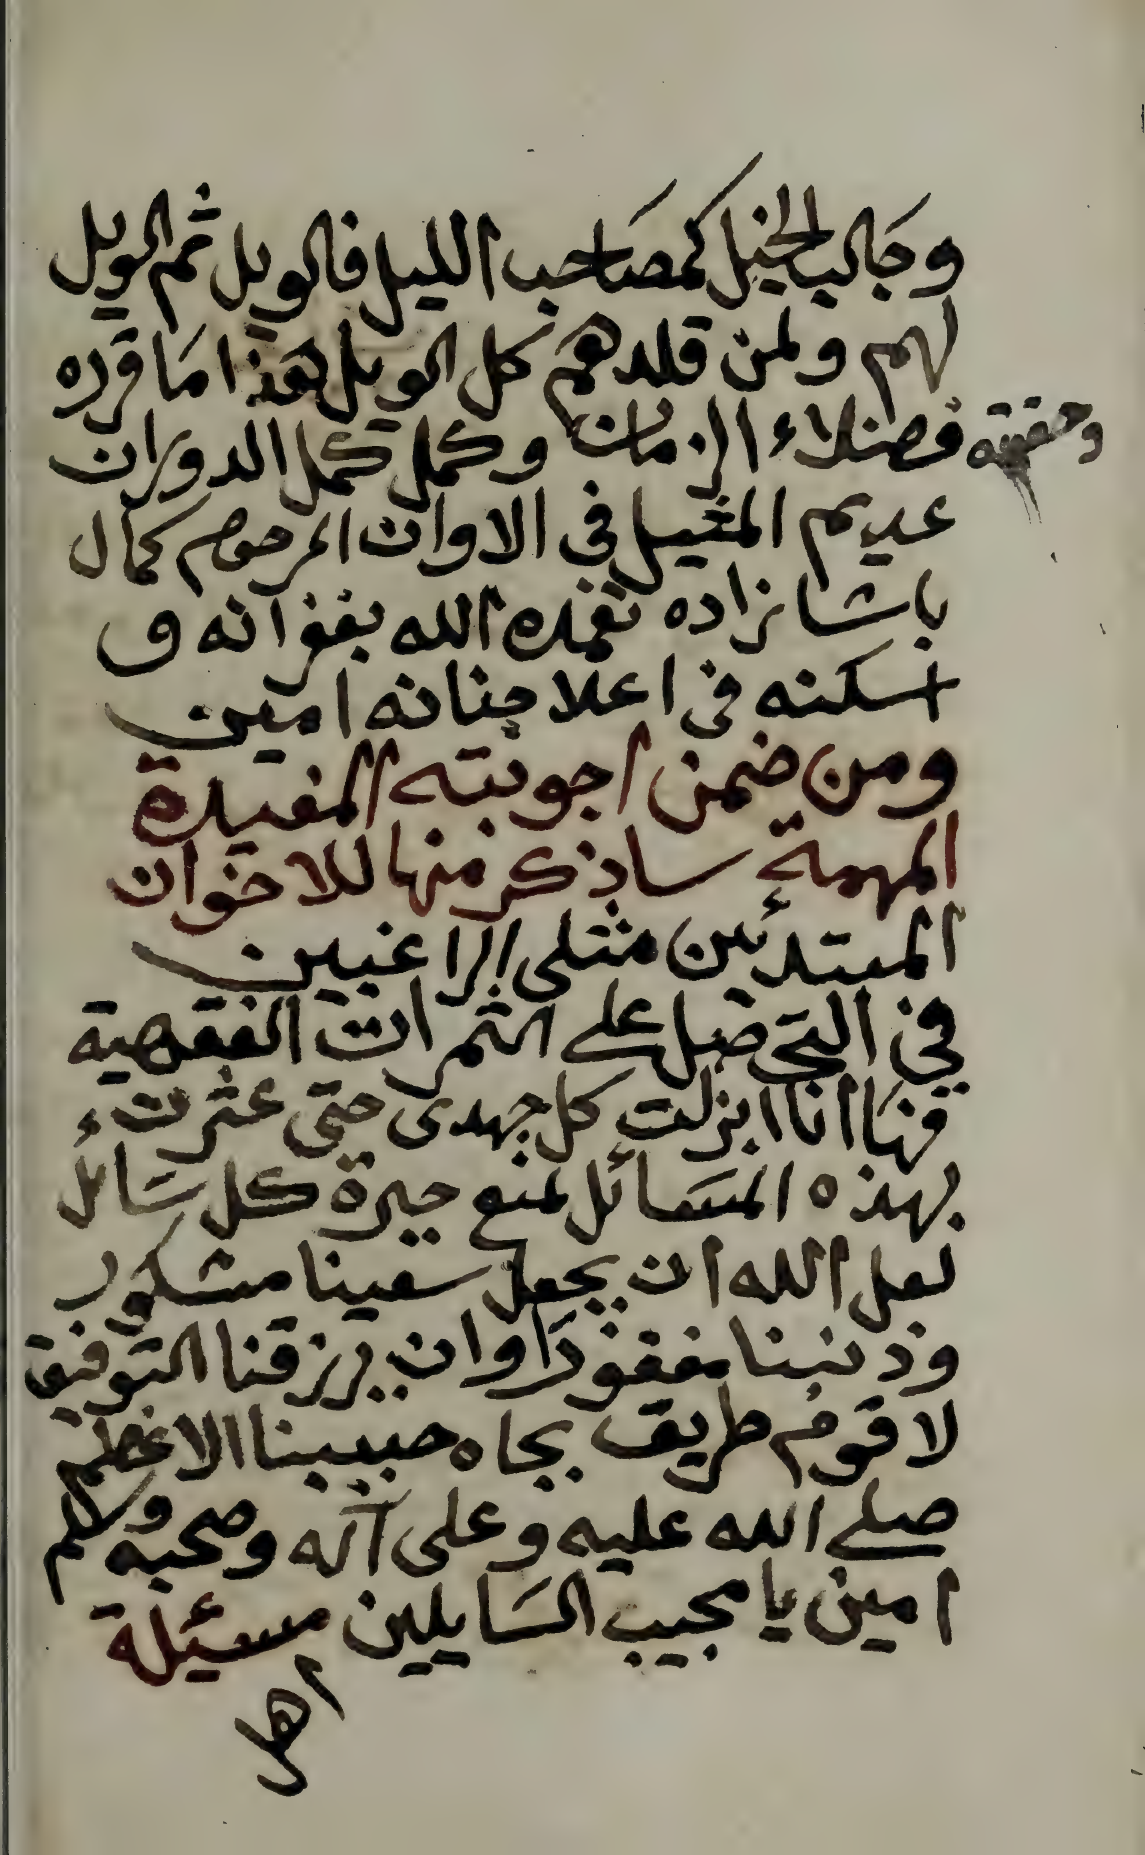 وجالب الخيل كمصاحب الليل فالويل ثم الويل
لهم ولمن قلدهم كل الويل هذا ما قرره
وحققه فضلاء الزمان وكمل كمل الدوران
عديم المثيل في الاوان المرحوم كمال
باشا زاده تغمده الله بغفرانه و
اسكنه في اعلا جنانه امين
ومن ضمن اجوبته المفيدة
المهمة ساذكر منها للاخوان
المبتدئين مثلى الراغبين
في التحصيل على الثمرات الفقهية
فها انا ابزلت كل جهدى حتى عثرت
بهذه المسائل لمنع حيرة كل سائل
لعل الله ان يجعل سعينا مشكور
وذنبنا مغفورا وان يرزقنا التوفيق
لاقوم طريق بجاه حبيبنا الاعظم
صلى الله عليه وعلى آله وصحبه وسلم
امين يا مجيب السايلين مسئلة
اهل